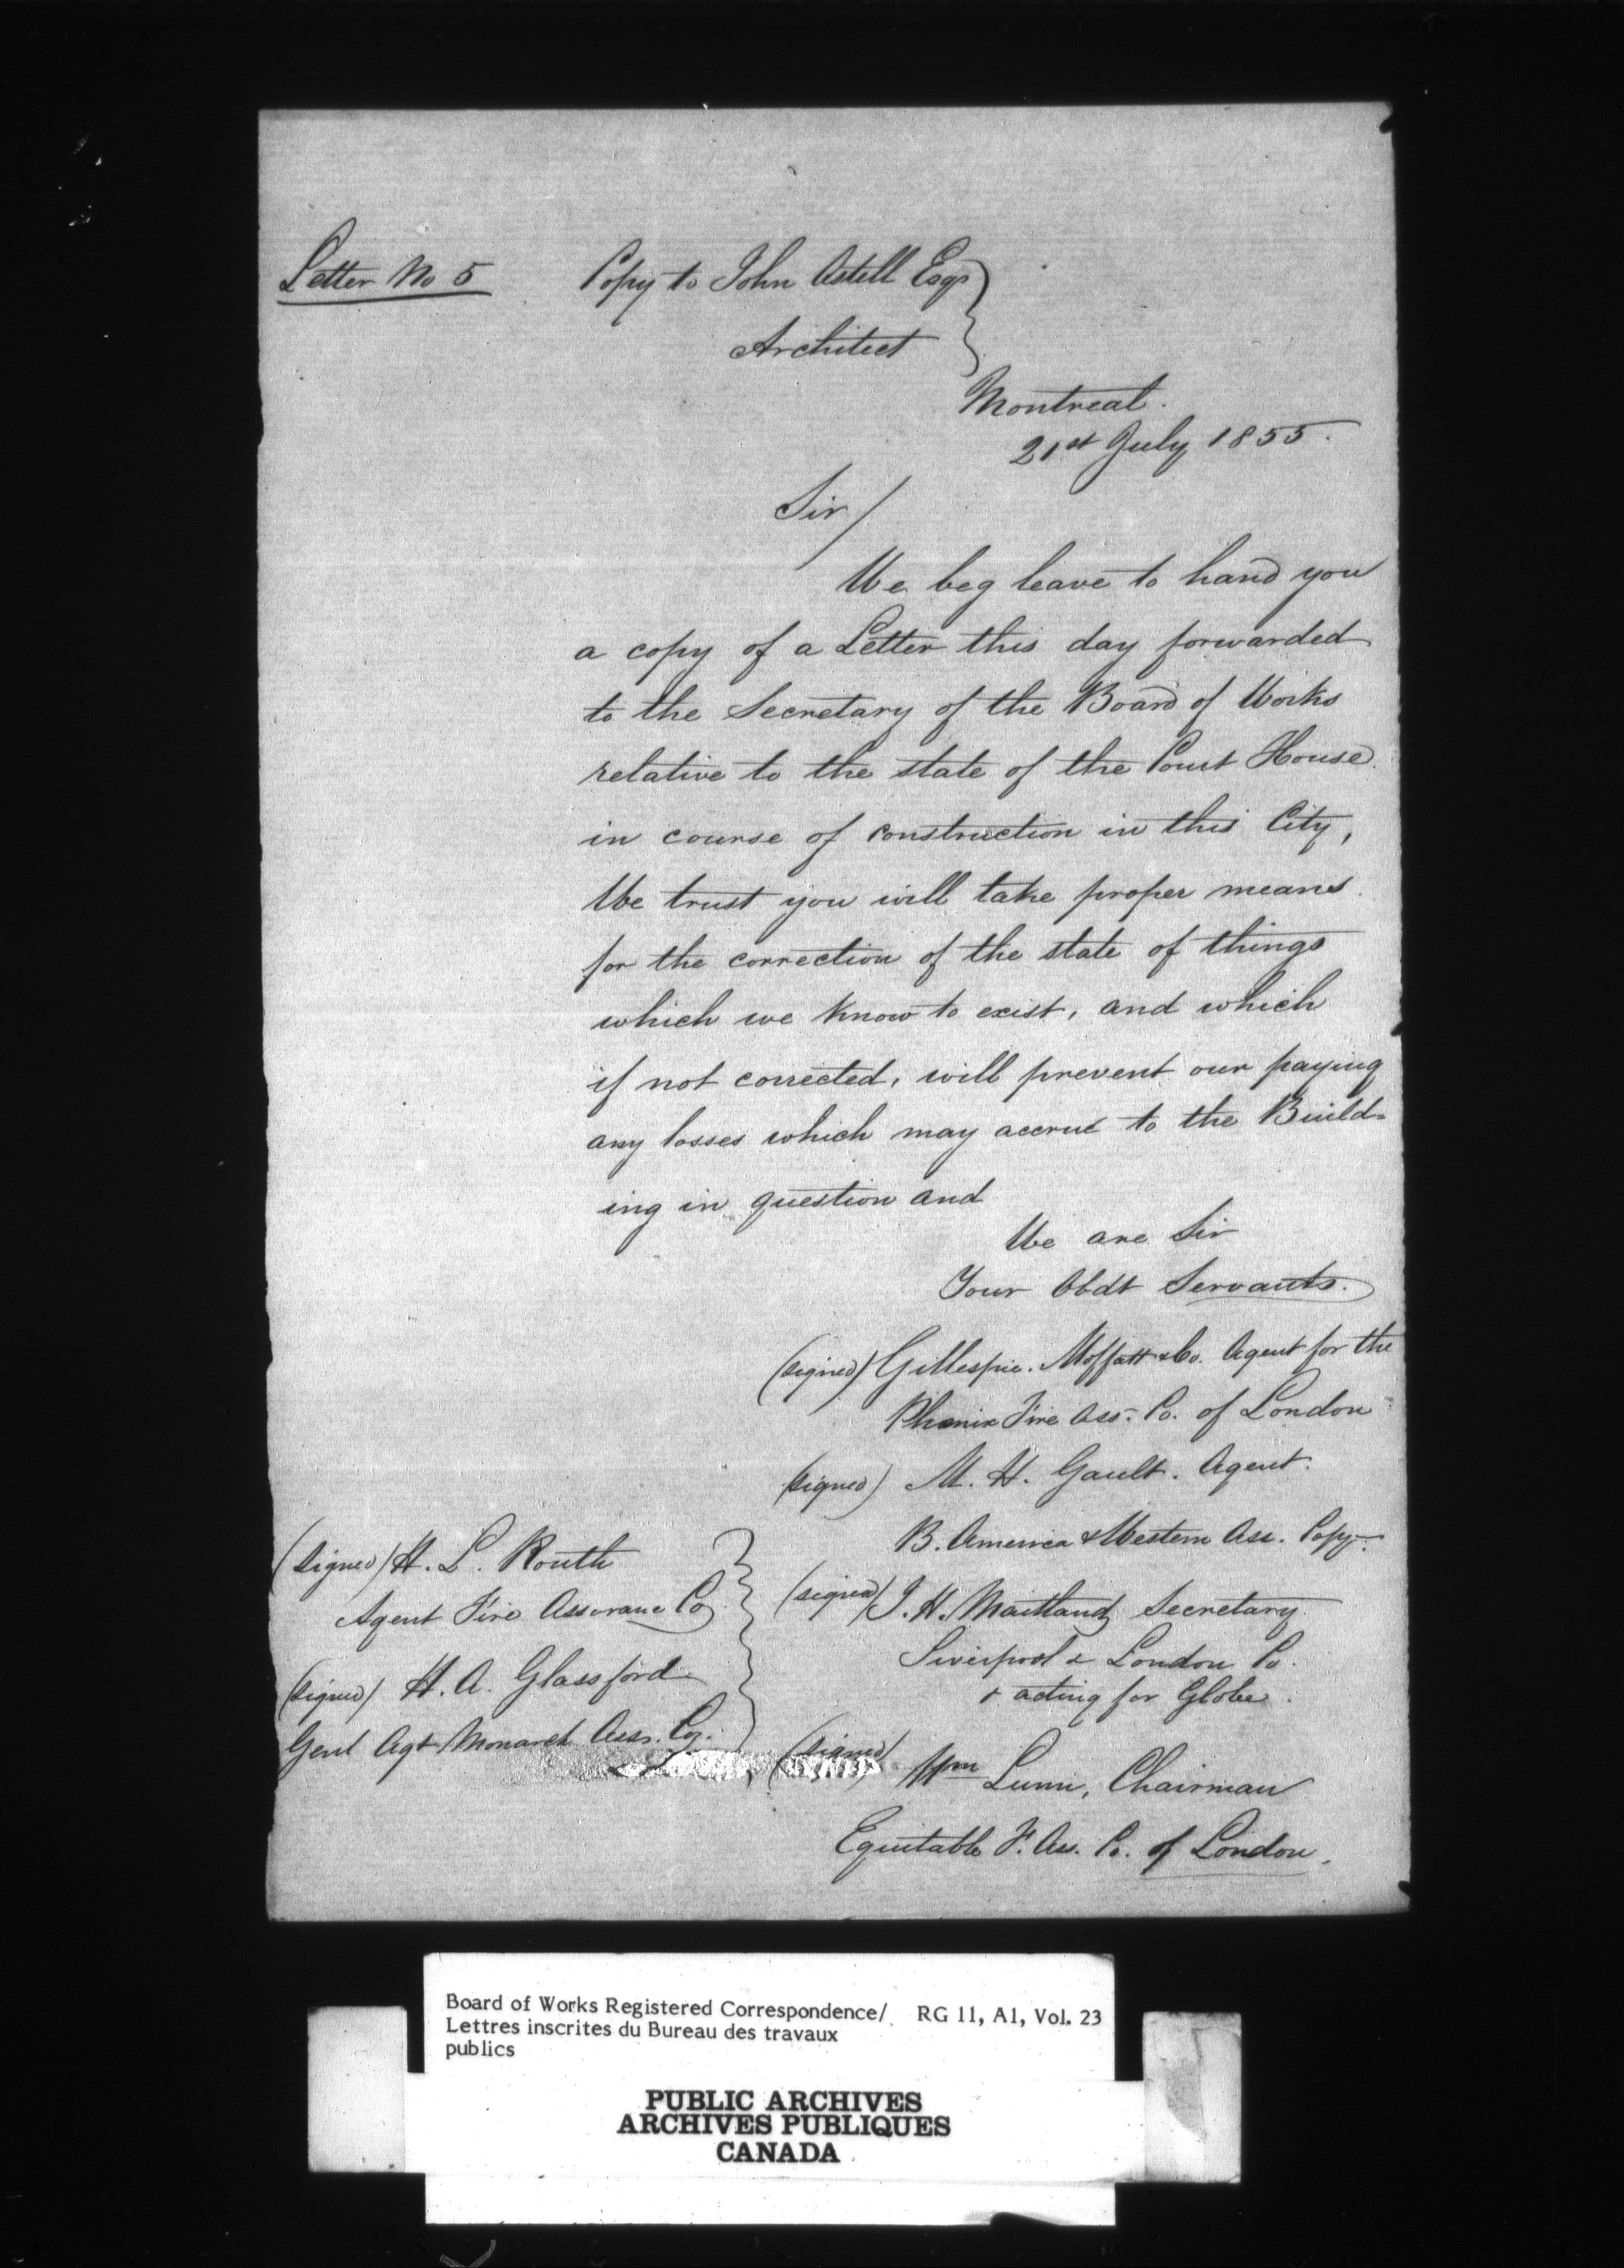 Letter No 5
Copy to John Ostell Esqr
Architect
Montreal.
21st July 1855.
Sir/
We beg leave to hand you
a copy of a Letter this day forwarded
to the Secretary of the Board of Works
relative to the state of the Court House
in course of construction in this City,
We trust you will take proper means
for the correction of the state of things
which we know to exist, and which
if not corrected, will prevent our paying
any losses which may accrue to the Build-
ing in question and
We are Sir
Your Obdt Servants.
(signed) Gillespie. Moffatt & Co. Agent for the
Phenix Fire Ass. Co. of London
(signed) M. H. Gault. Agent.
B. America & Western Ass. Copy.
(signed) J. H. Maitland Secretary
Liverpool & London Co.
& acting for Globe.
(signed) Wm Lunn, Chairman
Equitable F. Ass. Co. of London.
(signed) H. L. Routh
Agent Fire Assurance Co
(signed) H. A. Glassford
Genl Agt Monarch Assr. Coy.
Board of Works Registered Correspondence/ RG 11, A1, Vol. 23
Lettres inscrites du Bureau des travaux
publics
PUBLIC ARCHIVES
ARCHIVES PUBLIQUES
CANADA